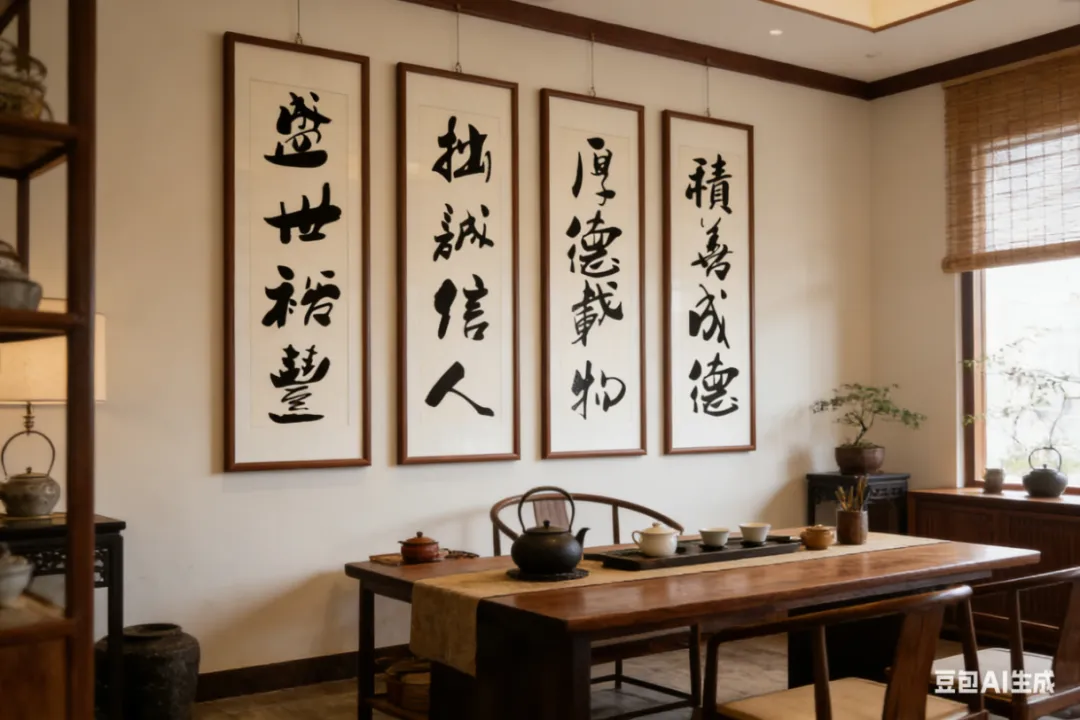 積善成德
厚德載物
拙誠信人
盛世裕豐
豆包AI生成